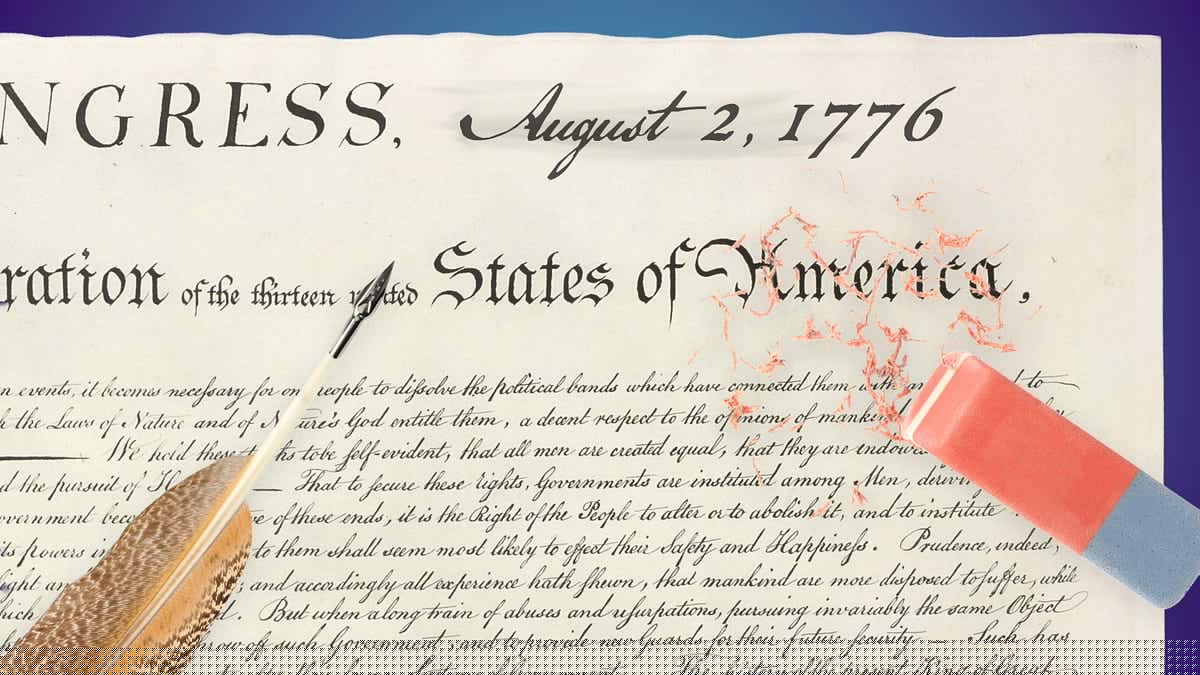 NGRESS, August 2, 1776
ration of the thirteen States of America,
n events, it becomes necessary for people to dissolve the political bands which have connected them with to
the Laws of Nature and of God entitle them, a decent respect to the opinions of mankind
We hold these tobe self-evident, that all men are created equal, that they are
d the pursuit of That to secure these rights, Governments are instituted among Men,
of these ends, it is the Right of the People to alter or to abolish it, and to institute
its powers to them shall seem most likely to effect their Safety and Happiness. Prudence, indeed,
; and accordingly all experience hath shewn, that mankind are more disposed to suffer, while
But when a long train of abuses and usurpations, pursuing invariably the same Object
off such Government, and to provide new Guards for their future security. — Such has
The history of the present King of Great